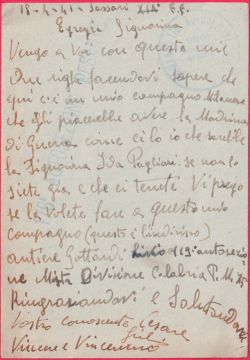 18-4-41- Sassari XIX E.F.
Egregia Signorina
Vengo a Voi con queste mie
Due righe facendovi sapere che
qui c'è un mio compagno Milanese
che gli piacerebbe avere la Madrina
di Guerra come ci lo io che sarebbe
la Signorina Ida Pagliari se non lo
siete gia e che ci tenete Vi prego
se la volete fare a questo mio
compagno (questo è l'indirizzo)
Gottardi 119° autosezio
ne Mista Divisione Calabria P.M. 75
Ringraziandovi e Salutandovi
Vostro conoscente Cesare
Vincere e Vinceremo